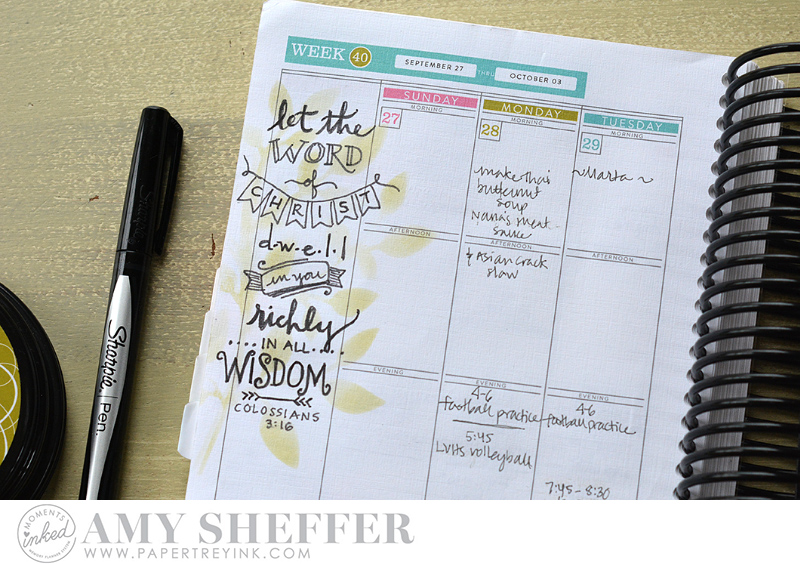 WEEK 40
SEPTEMBER 27 THRU OCTOBER 03
SUNDAY
MORNING
27
AFTERNOON
EVENING
MONDAY
MORNING
28
make thai
butternut
soup
Nana's meat
sauce
AFTERNOON
& Asian crack
slaw
EVENING
4-6
football practice
5:45
LVHS volleyball
TUESDAY
MORNING
29
~Marta~
AFTERNOON
EVENING
4-6
football practice
7:45-8:30
let the
WORD
of
CHRIST
d.w.e.l.l
in you
richly
....IN ALL....
WISDOM
COLOSSIANS
3:16
Sharpie | Pen.
MOMENTS
inked
AMY SHEFFER
WWW.PAPERTREYINK.COM